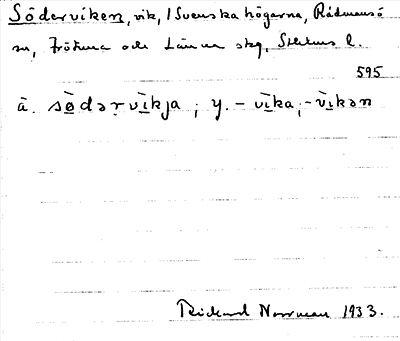 Söderviken, vik, 1 Svenska högarna, Rådmansö
sn, Frötuna och Länna skg, Sthlms l.
595
ä. sø̄dərvīkja; y. -vīka, -vīkən
Rickard Norrman 1933.